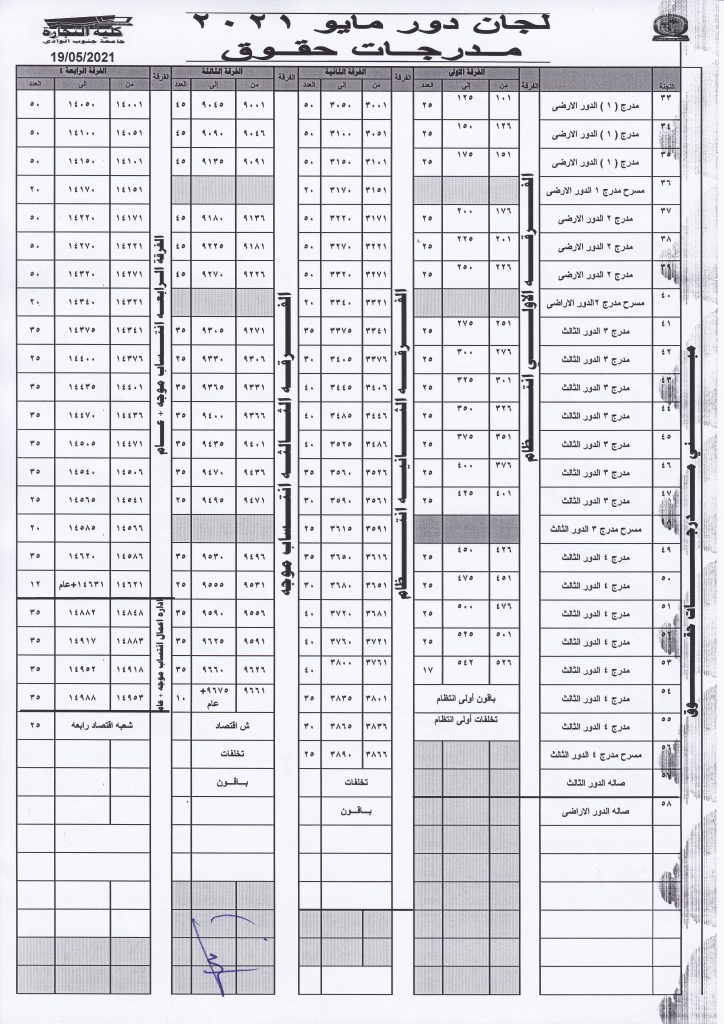 لجان دور مايو ٢٠٢١
مدرجات حقوق
كلية التجارة
جامعة جنوب الوادى
19/05/2021
اللجنة الفرقة الفرقة الاولى الفرقة الفرقة الثانية الفرقة الفرقة الثالثة الفرقة الفرقة الرابعة ٤
من إلى العدد من إلى العدد من إلى العدد من إلى العدد
٣٣ مدرج ( ١ ) الدور الارضى ١٠١ ١٢٥ ٢٥ ٣٠٠١ ٣٠٥٠ ٥٠ ٩٠٠١ ٩٠٤٥ ٤٥ ١٤٠٠١ ١٤٠٥٠ ٥٠
٣٤ مدرج ( ١ ) الدور الارضى ١٢٦ ١٥٠ ٢٥ ٣٠٥١ ٣١٠٠ ٥٠ ٩٠٤٦ ٩٠٩٠ ٤٥ ١٤٠٥١ ١٤١٠٠ ٥٠
٣٥ مدرج ( ١ ) الدور الارضى ١٥١ ١٧٥ ٢٥ ٣١٠١ ٣١٥٠ ٥٠ ٩٠٩١ ٩١٣٥ ٤٥ ١٤١٠١ ١٤١٥٠ ٥٠
٣٦ مسرح مدرج ١ الدور الارضى ٣١٥١ ٣١٧٠ ٢٠ ١٤١٥١ ١٤١٧٠ ٢٠
٣٧ مدرج ٢ الدور الارضى ١٧٦ ٢٠٠ ٢٥ ٣١٧١ ٣٢٢٠ ٥٠ ٩١٣٦ ٩١٨٠ ٤٥ ١٤١٧١ ١٤٢٢٠ ٥٠
٣٨ مدرج ٢ الدور الارضى ٢٠١ ٢٢٥ ٢٥ ٣٢٢١ ٣٢٧٠ ٥٠ ٩١٨١ ٩٢٢٥ ٤٥ ١٤٢٢١ ١٤٢٧٠ ٥٠
٣٩ مدرج ٢ الدور الارضى ٢٢٦ ٢٥٠ ٢٥ ٣٢٧١ ٣٣٢٠ ٥٠ ٩٢٢٦ ٩٢٧٠ ٤٥ ١٤٢٧١ ١٤٣٢٠ ٥٠
٤٠ مسرح مدرج ٢الدور الاراضى ٣٣٢١ ٣٣٤٠ ٢٠ ١٤٣٢١ ١٤٣٤٠ ٢٠
٤١ مدرج ٣ الدور الثالث ٢٥١ ٢٧٥ ٢٥ ٣٣٤١ ٣٣٧٥ ٣٥ ٩٢٧١ ٩٣٠٥ ٣٥ ١٤٣٤١ ١٤٣٧٥ ٣٥
٤٢ مدرج ٣ الدور الثالث ٢٧٦ ٣٠٠ ٢٥ ٣٣٧٦ ٣٤٠٥ ٣٠ ٩٣٠٦ ٩٣٣٠ ٢٥ ١٤٣٧٦ ١٤٤٠٠ ٢٥
٤٣ مدرج ٣ الدور الثالث ٣٠١ ٣٢٥ ٢٥ ٣٤٠٦ ٣٤٤٥ ٤٠ ٩٣٣١ ٩٣٦٥ ٣٥ ١٤٤٠١ ١٤٤٣٥ ٣٥
٤٤ مدرج ٣ الدور الثالث ٣٢٦ ٣٥٠ ٢٥ ٣٤٤٦ ٣٤٨٥ ٤٠ ٩٣٦٦ ٩٤٠٠ ٣٥ ١٤٤٣٦ ١٤٤٧٠ ٣٥
٤٥ مدرج ٣ الدور الثالث ٣٥١ ٣٧٥ ٢٥ ٣٤٨٦ ٣٥٢٥ ٤٠ ٩٤٠١ ٩٤٣٥ ٣٥ ١٤٤٧١ ١٤٥٠٥ ٣٥
٤٦ مدرج ٣ الدور الثالث ٣٧٦ ٤٠٠ ٢٥ ٣٥٢٦ ٣٥٦٠ ٣٥ ٩٤٣٦ ٩٤٧٠ ٣٥ ١٤٥٠٦ ١٤٥٤٠ ٣٥
٤٧ مدرج ٣ الدور الثالث ٤٠١ ٤٢٥ ٢٥ ٣٥٦١ ٣٥٩٠ ٣٠ ٩٤٧١ ٩٤٩٥ ٢٥ ١٤٥٤١ ١٤٥٦٥ ٢٥
مسرح مدرج ٣ الدور الثالث ٣٥٩١ ٣٦١٥ ٢٥ ١٤٥٦٦ ١٤٥٨٥ ٢٠
٤٩ مدرج ٤ الدور الثالث ٤٢٦ ٤٥٠ ٢٥ ٣٦١٦ ٣٦٥٠ ٣٥ ٩٤٩٦ ٩٥٣٠ ٣٥ ١٤٥٨٦ ١٤٦٢٠ ٣٥
٥٠ مدرج ٤ الدور الثالث ٤٥١ ٤٧٥ ٢٥ ٣٦٥١ ٣٦٨٠ ٣٠ ٩٥٣١ ٩٥٥٥ ٢٥ ١٤٦٢١ ١٤٦٣١+عام ١٢
٥١ مدرج ٤ الدور الثالث ٤٧٦ ٥٠٠ ٢٥ ٣٦٨١ ٣٧٢٠ ٤٠ ٩٥٥٦ ٩٥٩٠ ٣٥ ١٤٨٤٨ ١٤٨٨٢ ٣٥
٥٢ مدرج ٤ الدور الثالث ٥٠١ ٥٢٥ ٢٥ ٣٧٢١ ٣٧٦٠ ٤٠ ٩٥٩١ ٩٦٢٥ ٣٥ ١٤٨٨٣ ١٤٩١٧ ٣٥
٥٣ مدرج ٤ الدور الثالث ٥٢٦ ٥٤٢ ١٧ ٣٧٦١ ٣٨٠٠ ٤٠ ٩٦٢٦ ٩٦٦٠ ٣٥ ١٤٩١٨ ١٤٩٥٢ ٣٥
٥٤ مدرج ٤ الدور الثالث باقون أولى انتظام ٣٨٠١ ٣٨٣٥ ٣٥ ٩٦٦١ ٩٦٧٥+ عام ١٠ ١٤٩٥٣ ١٤٩٨٨ ٣٥
٥٥ مدرج ٤ الدور الثالث تخلفات أولى انتظام ٣٨٣٦ ٣٨٦٥ ٣٠ ش اقتصاد شعبه اقتصاد رابعه ٢٥
٥٦ مسرح مدرج ٤ الدور الثالث ٣٨٦٦ ٣٨٩٠ ٢٥ تخلفات
٥٧ صاله الدور الثالث تخلفات باقون
٥٨ صاله الدور الاراضى باقون
مبنى مدرجات حقوق
الفرقه الاولى انتظام
الفرقه الثانيه انتظام
الفرقه الثالثه انتساب موجه
الفرقة الرابعه انتساب موجه + عام
اداره اعمال انتساب موجه + عام